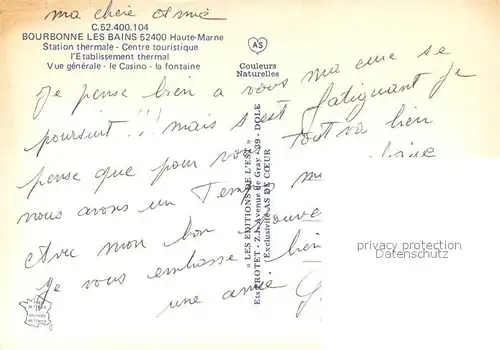 ma chère amie
C.52.400.104
BOURBONNE LES BAINS 52400 Haute-Marne
Station thermale - Centre touristique
l'Etablissement thermal
Vue générale - le Casino - la fontaine
AS
Couleurs
Naturelles
Je pense bien a vous ma cure se
poursuit !!! mais s'est fatiguant je
pense que pour vous tout va bien
nous avons un Temps
Avec mon bon
Je vous embrasse bien
une amie
« LES EDITIONS DE L'EST »
Ets PROTET - Z.I. Avenue de Gray - 39 - DOLE
Exclusivité AS DE CŒUR
privacy protection
Datenschutz